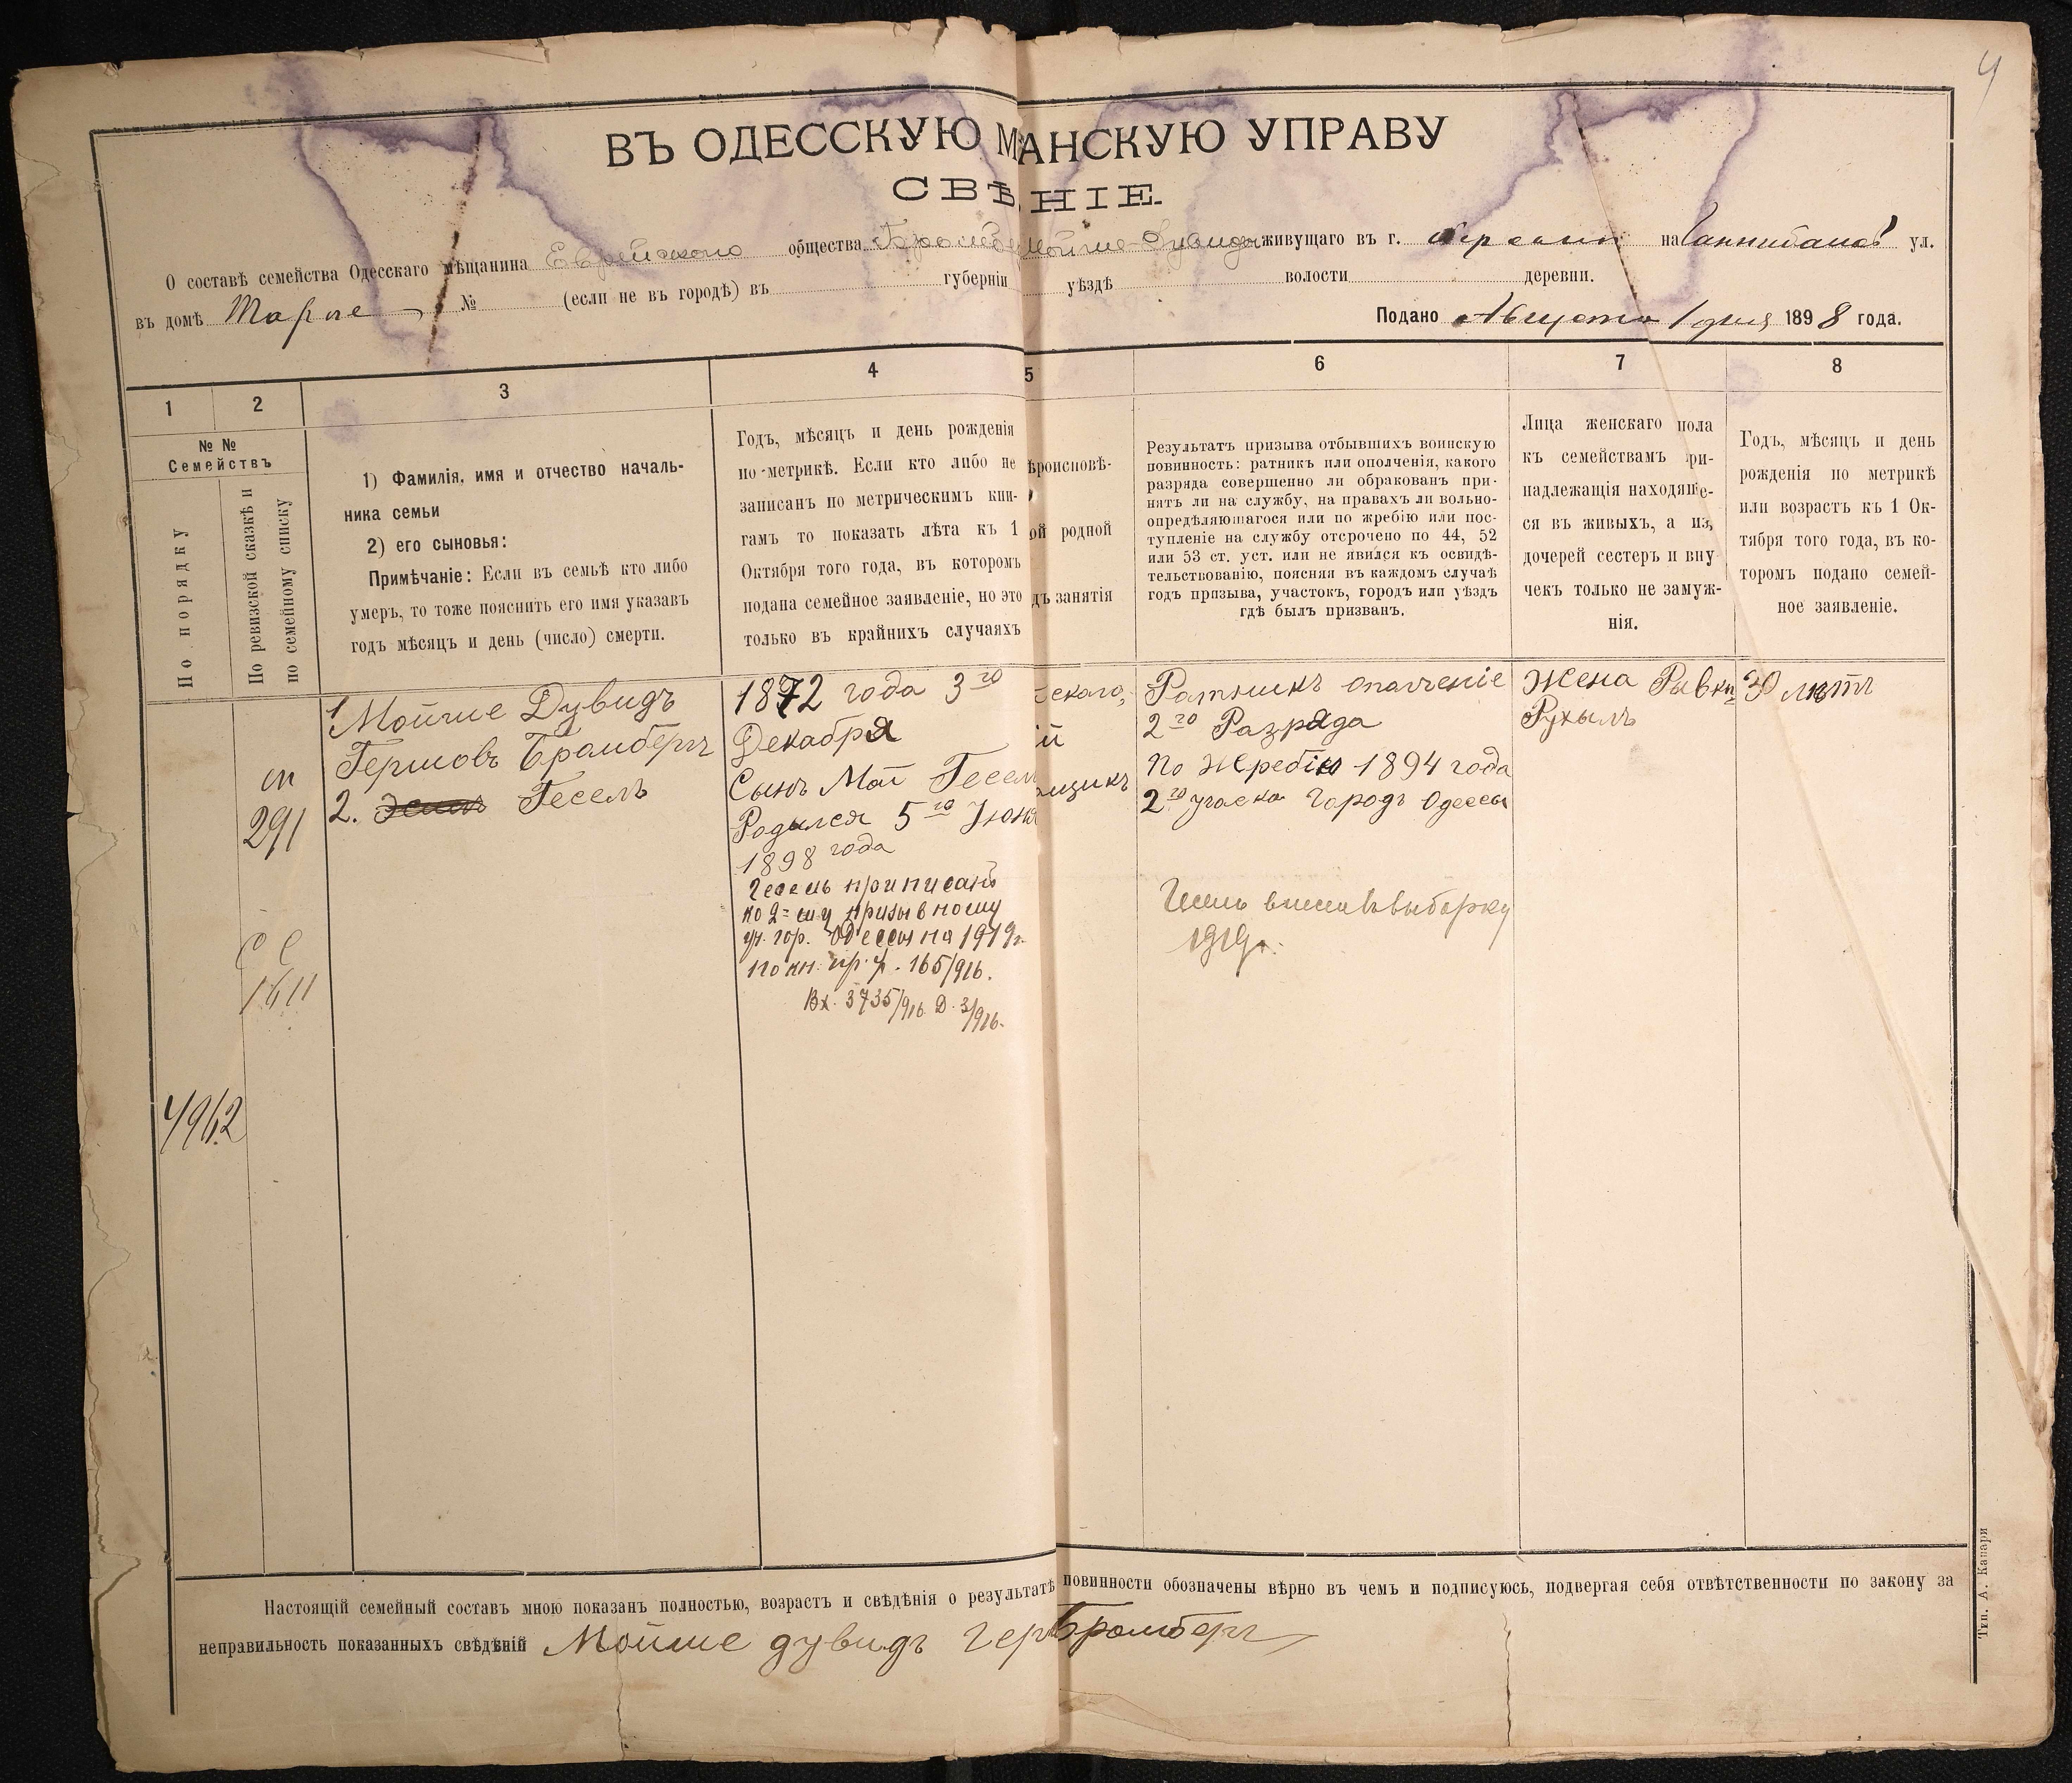 4
ВЪ ОДЕССКУЮ М АНСКУЮ УПРАВУ
СВѢ НІЕ.
О составѣ семейства Одесскаго мѣщанина Еврейскаго общества Мойше-Дувидъ живущаго въ г. на ул.
въ домѣ № (если не въ городѣ) въ губерніи уѣздѣ волости деревни.
Подано Августа 1 дня 1898 года.
1 2 3 4 5 6 7 8
№ №
Семействъ
По порядку
По ревизской сказкѣ и
по семейному списку
1) Фамилія, имя и отчество началь-
ника семьи
2) его сыновья:
Примѣчаніе: Если въ семьѣ кто либо
умеръ, то тоже пояснить его имя указавъ
годъ мѣсяцъ и день (число) смерти.
Годъ, мѣсяцъ и день рожденія
по метрикѣ. Если кто либо не
записанъ по метрическимъ кни-
гамъ то показать лѣта къ 1
Октября того года, въ которомъ
подана семейное заявленіе, но это
только въ крайнихъ случаяхъ
ѣроисповѣ-
ой родной
дъ занятія
Результатъ призыва отбывшихъ воинскую
повинность: ратникъ или ополченія, какого
разряда совершенно ли обракованъ при-
нятъ ли на службу, на правахъ ли вольно-
опредѣляющагося или по жребію или пос-
тупленіе на службу отсрочено по 44, 52
или 53 ст. уст. или не явился къ освидѣ-
тельствованію, поясняя въ каждомъ случаѣ
годъ призыва, участокъ, городъ или уѣздъ
гдѣ былъ призванъ.
Лица женскаго пола
къ семействамъ при-
надлежащія находяще-
ся въ живыхъ, а из,
дочерей сестеръ и вну
чекъ только не замуж-
нія.
Годъ, мѣсяцъ и день
рожденія по метрикѣ
или возрастъ къ 1 Ок-
тября того года, въ ко-
торомъ подано семей-
ное заявленіе.
291
1611
4962
1 Мойше Дувидъ
Гершовъ Бромбергъ
2. Гесель
1872 года 3го
Декабря
Сынъ Мой Гесел
Родился 5го Июня
1898 года
Гесель приписанъ
ко 2=му призывному
уч. гор. Одессы на 1919г.
по кн. пр. у. 165/916.
Вх. 3735/916 Д. 3/916.
й
щикъ
Ратникъ ополченіе
2го Разряда
по жребію 1894 года
2го участка Городъ Одессы
Гесель внесен въ выборку
1919г.
Жена Рывка
Рухыль
30 лѣтъ
Настоящій семейный составъ мною показанъ полностью, возрастъ и свѣдѣнія о результатѣ повинности обозначены вѣрно въ чемъ и подписуюсь, подвергая себя отвѣтственности по закону за
неправильность показанныхъ свѣдѣній Мойше дувидъ гер Бромбергъ
Тип. А. Капари